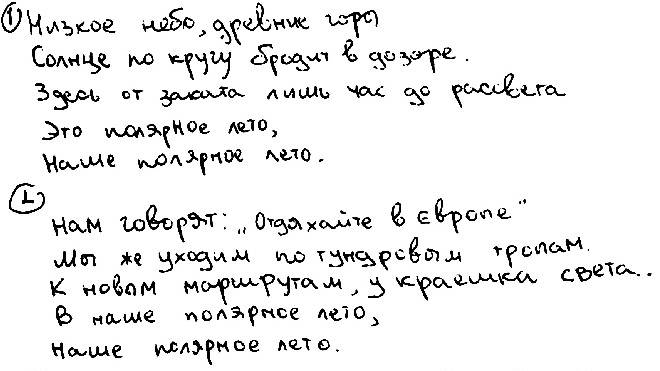 ① Низкое небо, древние горы
Солнце по кругу бродит в дозоре.
Здесь от заката лишь час до рассвета
Это полярное лето,
Наше полярное лето.
②
Нам говорят: „Отдыхайте в Европе"
Мы же уходим по тундровым тропам.
К новым маршрутам, у краешка света..
В наше полярное лето,
Наше полярное лето.